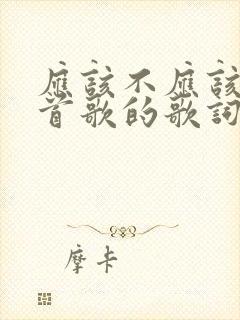 應該不應該
首歌的歌詞
摩卡